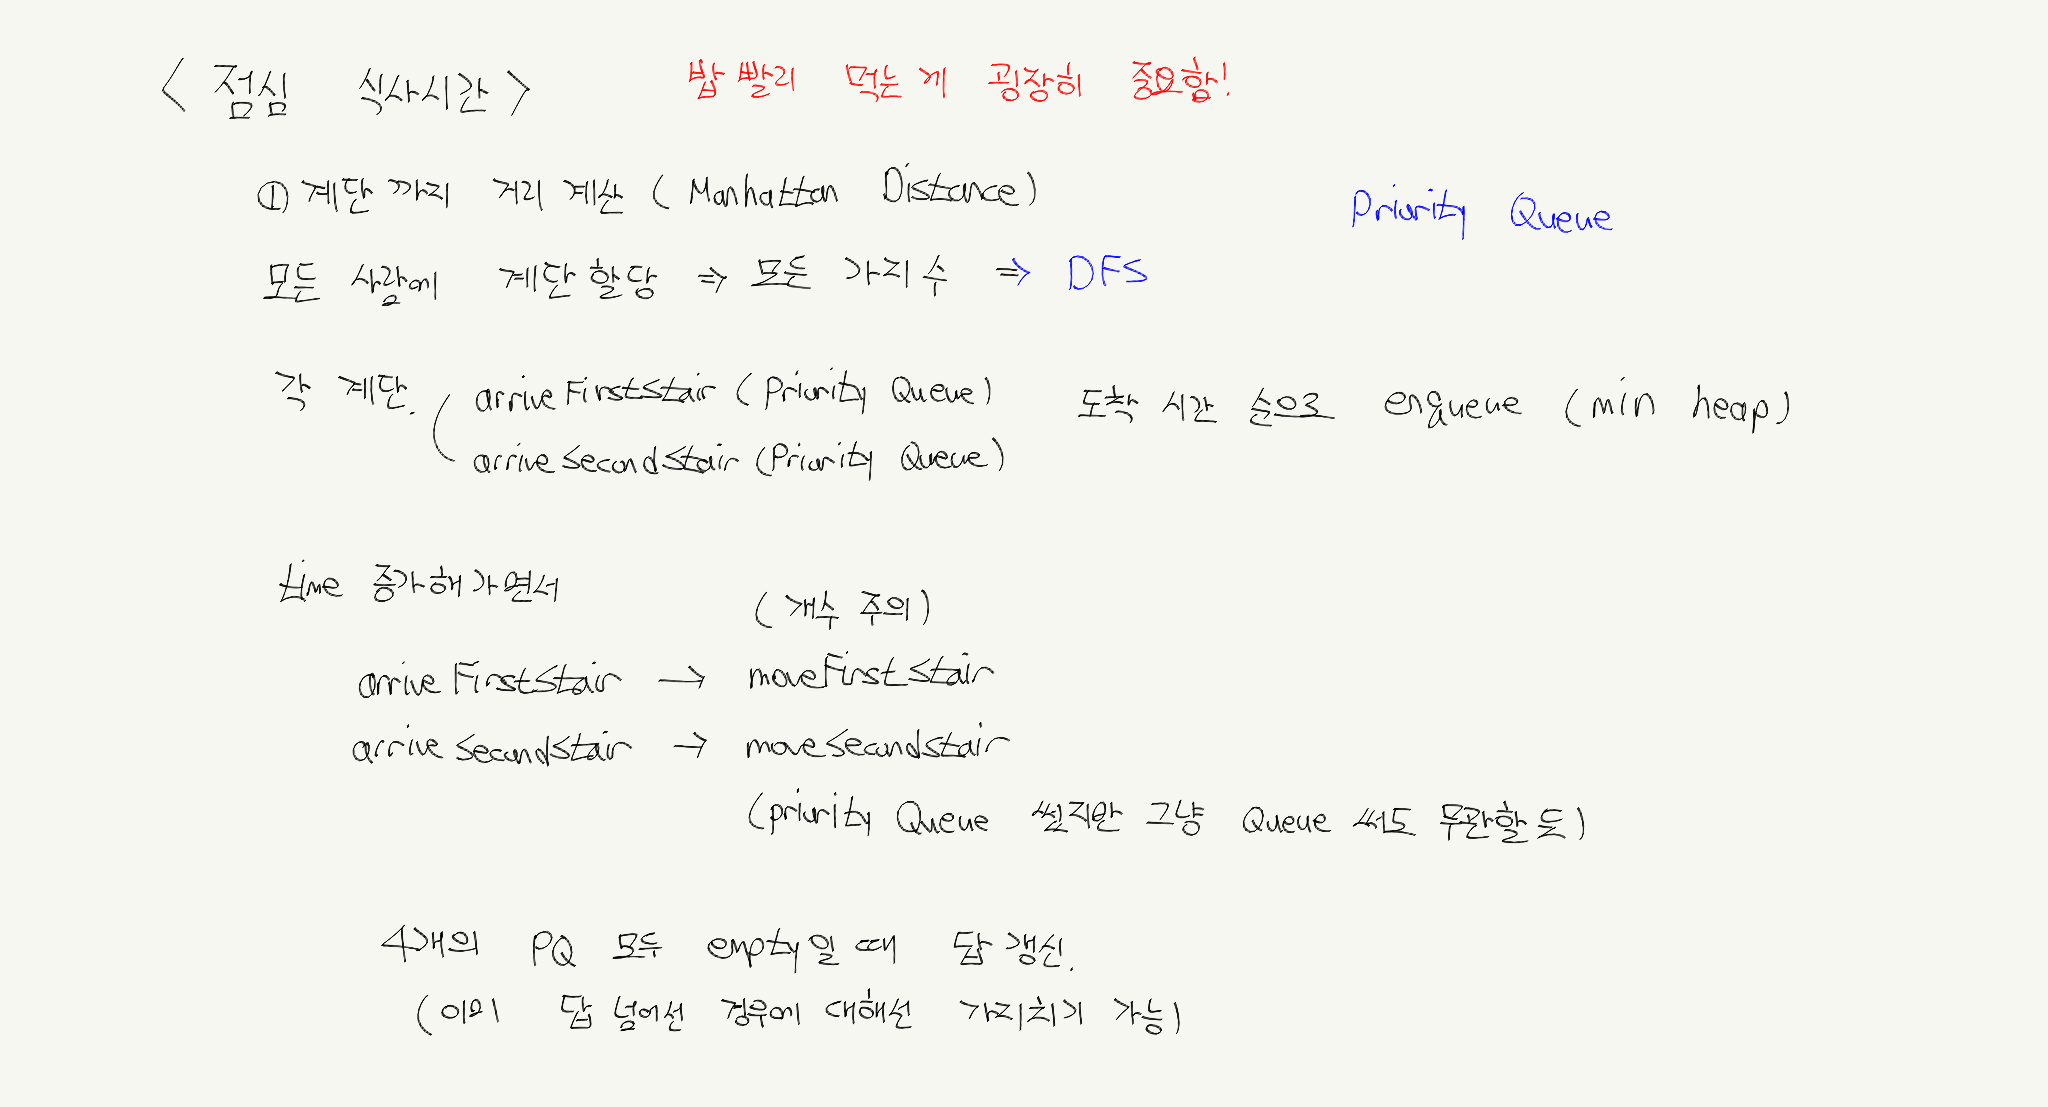 < 점심 식사시간 > 밥 빨리 먹는게 굉장히 중요함!
① 계단까지 거리 계산 (Manhattan Distance)
Priority Queue
모든 사람에 계단 할당 ⇒ 모든 가지 수 ⇒ DFS
각 계단. arriveFirstStair (Priority Queue) 도착 시간 순으로 enqueue (min heap)
arriveSecondStair (Priority Queue)
time 증가해가면서
(개수 주의)
arriveFirstStair → moveFirstStair
arriveSecondStair → moveSecondStair
(priority Queue 썼지만 그냥 Queue 써도 무관할 듯)
4개의 PQ 모두 empty일 때 답 갱신.
(이미 답 넘어선 경우에 대해선 가지치기 가능)